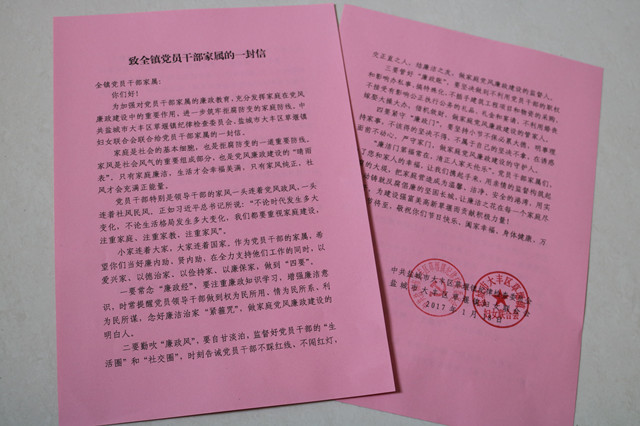 致全镇党员干部家属的一封信
全镇党员干部家属：
你们好！
为加强对党员干部家属的廉政教育，充分发挥家庭在党风
廉政建设中的重要作用，进一步筑牢拒腐防变的家庭防线。中
共盐城市大丰区草堰镇纪律检查委员会、盐城市大丰区草堰镇
妇女联合会联合给党员干部家属的一封信。
家庭是社会的基本细胞，也是拒腐防变的一道重要防线。
家风是社会风气的重要组成部分，也是党风廉政建设的“晴雨
表”。只有家庭廉洁，生活才会幸福美满，只有家风纯正，社
风才会充满正能量。
党员干部特别是领导干部的家风一头连着党风政风，一头
连着社风民风。正如习近平总书记所说：“不论时代发生多大
变化，不论生活格局发生多大变化，我们都要重视家庭建设，
注重家庭、注重家教、注重家风”。
小家连着大家，大家连着国家，作为党员干部的家属，希
望你们当好廉内助、贤内助，在全力支持他们工作的同时，以
爱兴家、以德治家、以俭持家、以廉保家，做到“四要”。
一要常念“廉政经”，要注重廉政知识学习，增强廉洁意
识，时常提醒党员领导干部做到权为民所用，情为民所系，利
为民所谋，念好廉洁治家“紧箍咒”，做家庭党风廉政建设的
明白人。
二要勤吹“廉政风”，要自甘淡泊，监督好党员干部的“生
活圈”和“社交圈”，时刻告诫党员干部不踩红线、不闯红灯，
交正直之人，结廉洁之友，做家庭党风廉政建设的监督人。
三要管好“廉政账”，要坚决做到不利用党员干部的职权
和影响办私事、搞特殊化，不插手建筑工程项目和物资的采购，
不接受有影响公正执行公务的礼品、礼金和宴请，不利用婚丧
嫁娶大操大办、借机敛财，做家庭党风廉政建设的管家人。
四要看守“廉政门”，要坚持小节不保功莫大焉，明事理
持家事，不该得的坚决不得，不属于自己的坚决不拿，在诱惑
面前不动心，严守家门，做家庭党风廉政建设的守护人。
“廉洁门里福常在，清正人家天伦乐”，党员干部家属们，
2017年1月18日